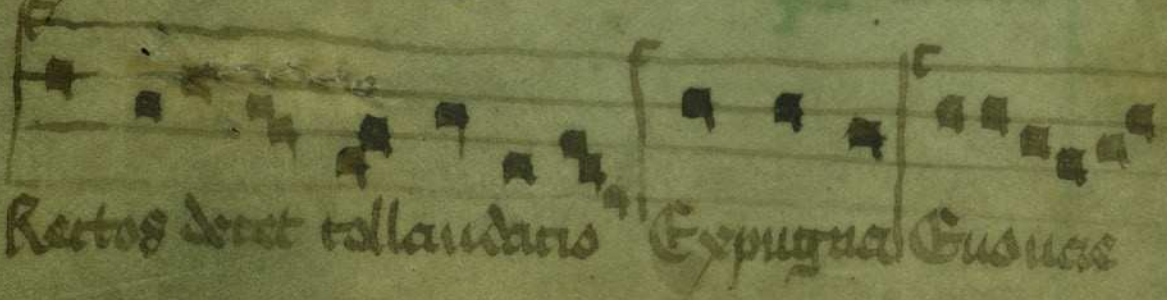 Rectos decet collaudatio Expugna Euouae